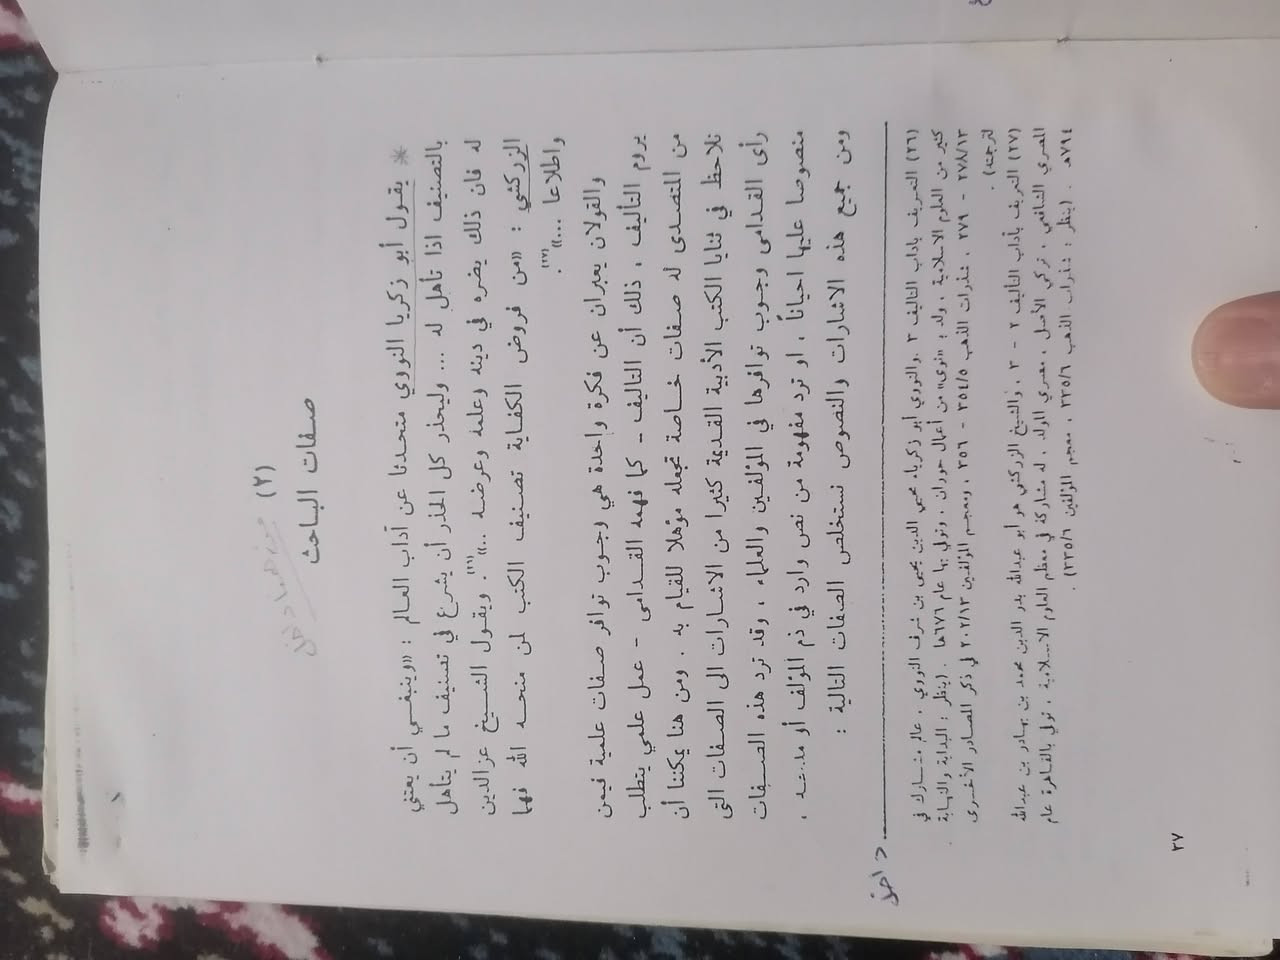 (٢)
صفات الباحث
* يقول أبو زكريا النووي متحدثا عن آداب العالم : «وينبغي أن يعتني
بالتصنيف اذا تأهل له ... وليحذر كل الحذر أن يشرع في تصنيف ما لم يتأهل
له فان ذلك يضره في دينه وعلمه وعرضه ..»(٢٦) . ويقول الشيخ عزالدين
الزركشي : «من فروض الكفاية تصنيف الكتب لمن منحه الله فهما
واطلاعا ...»(٢٧) .
والقولان يعبران عن فكرة واحدة هي وجوب توافر صفات علمية فيمن
يروم التأليف ، ذلك أن التاليف ـ كما فهمه القدامى - عمل علمي يتطلب
من المتصدى له صفات خاصة تجعله مؤهلا للقيام به . ومن هنا يمكننا أن
نلاحظ في ثنايا الكتب الأدبية القديمة كثيرا من الاشارات الى الصفات التي
رأى القدامى وجوب توافرها في المؤلفين والعلماء ، وقد ترد هذه الصفات
منصوصا عليها احياناً ، او ترد مفهومة من نص وارد في ذم المؤلف أو مدحه .
ومن جميع هذه الاشارات والنصوص نستخلص الصفات التالية :
(٢٦) التعريف باداب التاليف ٣ .والنووي أبو زكرياء محيي الدين يحيى بن شرف النووي ، عالم مشارك في
كثير من العلوم الاسلامية ، ولد بـ «نوى» من أعمال حوران ، وتوفي بها عام ٦٧٦هـ . (ينظر : البداية والنهاية
٢٧٨/١٣ - ٢٧٩ ، شذرات الذهب ٣٥٤/٥ - ٣٥٦ ، ومعجم المؤلفين ٢٠٢/١٣ في ذكر المصادر الأخرى
لترجمته) .
(٢٧) التعريف بآداب التأليف ٢ - ٣ . والشيخ الزركشي هو أبو عبدالله بدر الدين محمد بن بهادر بن عبدالله
المصري الشافعي ، تركي الأصل ، مصري المولد . له مشاركة في معظم العلوم الاسلامية ، توفي بالقاهرة عام
٧٩٤هـ . (ينظر : شذرات الذهب ٣٣٥/٦ ، معجم المؤلفين
٢٧